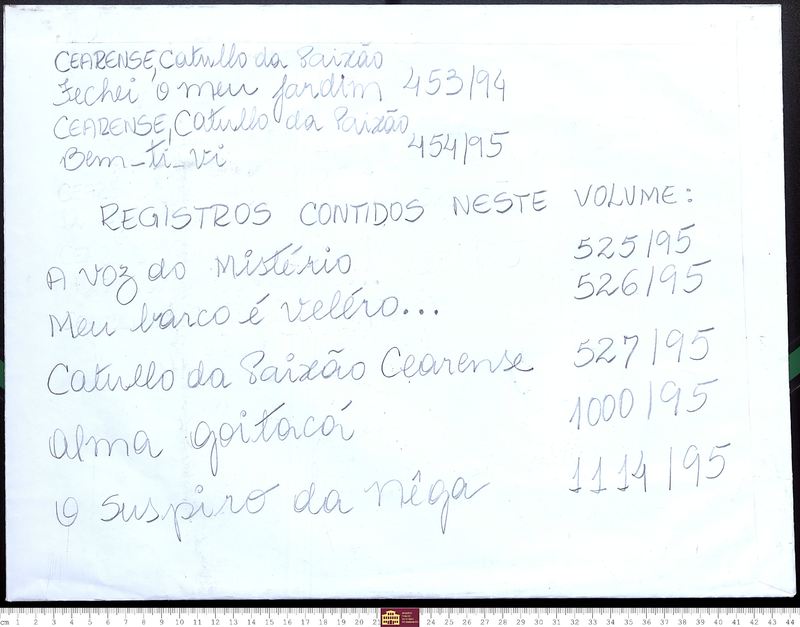 CEARENSE, Catullo da Paixão
Fechei o meu jardim 453/94
CEARENSE, Catullo da Paixão
Bem-ti-vi 454/95
REGISTROS CONTIDOS NESTE VOLUME:
A voz do Mistério 525/95
Meu barco é veléro... 526/95
Catullo da Paixão Cearense 527/95
Alma goitacá 1000/95
O suspiro da Nêga 1114/95
cm 1 2 3 4 5 6 7 8 9 10 11 12 13 14 15 16 17 18 19 20 24 25 26 27 28 29 30 31 32 33 34 35 36 37 38 39 40 41 42 43 44